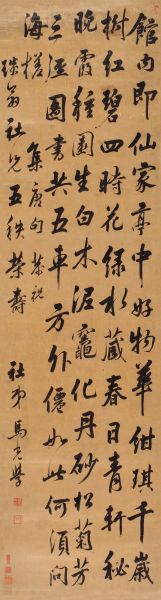 館內即仙家亭中好物華紺琪千歲
樹紅碧四時花綠水藏春日青軒秘
晚霞種園生白木泥竈化丹砂松菊芳
三逕圖書共五車方外僊如此何須問
海槎 集唐句恭祝
翁社兄五秩榮壽
社弟馬